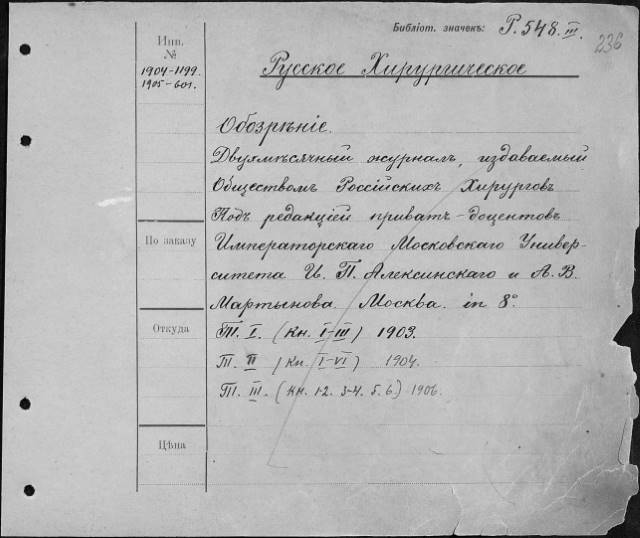 Библіот. значекъ: Р. 548 III.
236
Инв.
№
1904-1199.
1905-601.
Русское Хирургическое
Обозрѣніе.
Двухмѣсячный журналъ, издаваемый
Обществомъ Россійскихъ Хирурговъ
Подъ редакціей приватъ-доцентовъ
По заказу
Императорскаго Московскаго Универ-
ситета И. П. Алексинскаго и А. В.
Мартынова. Москва. in 8º
Откуда
Т. I. (Кн. I-III) 1903.
Т. II (Кн. I-VI) 1904.
Т. III. (Кн. 1-2. 3-4. 5. 6.) 1906.
Цѣна